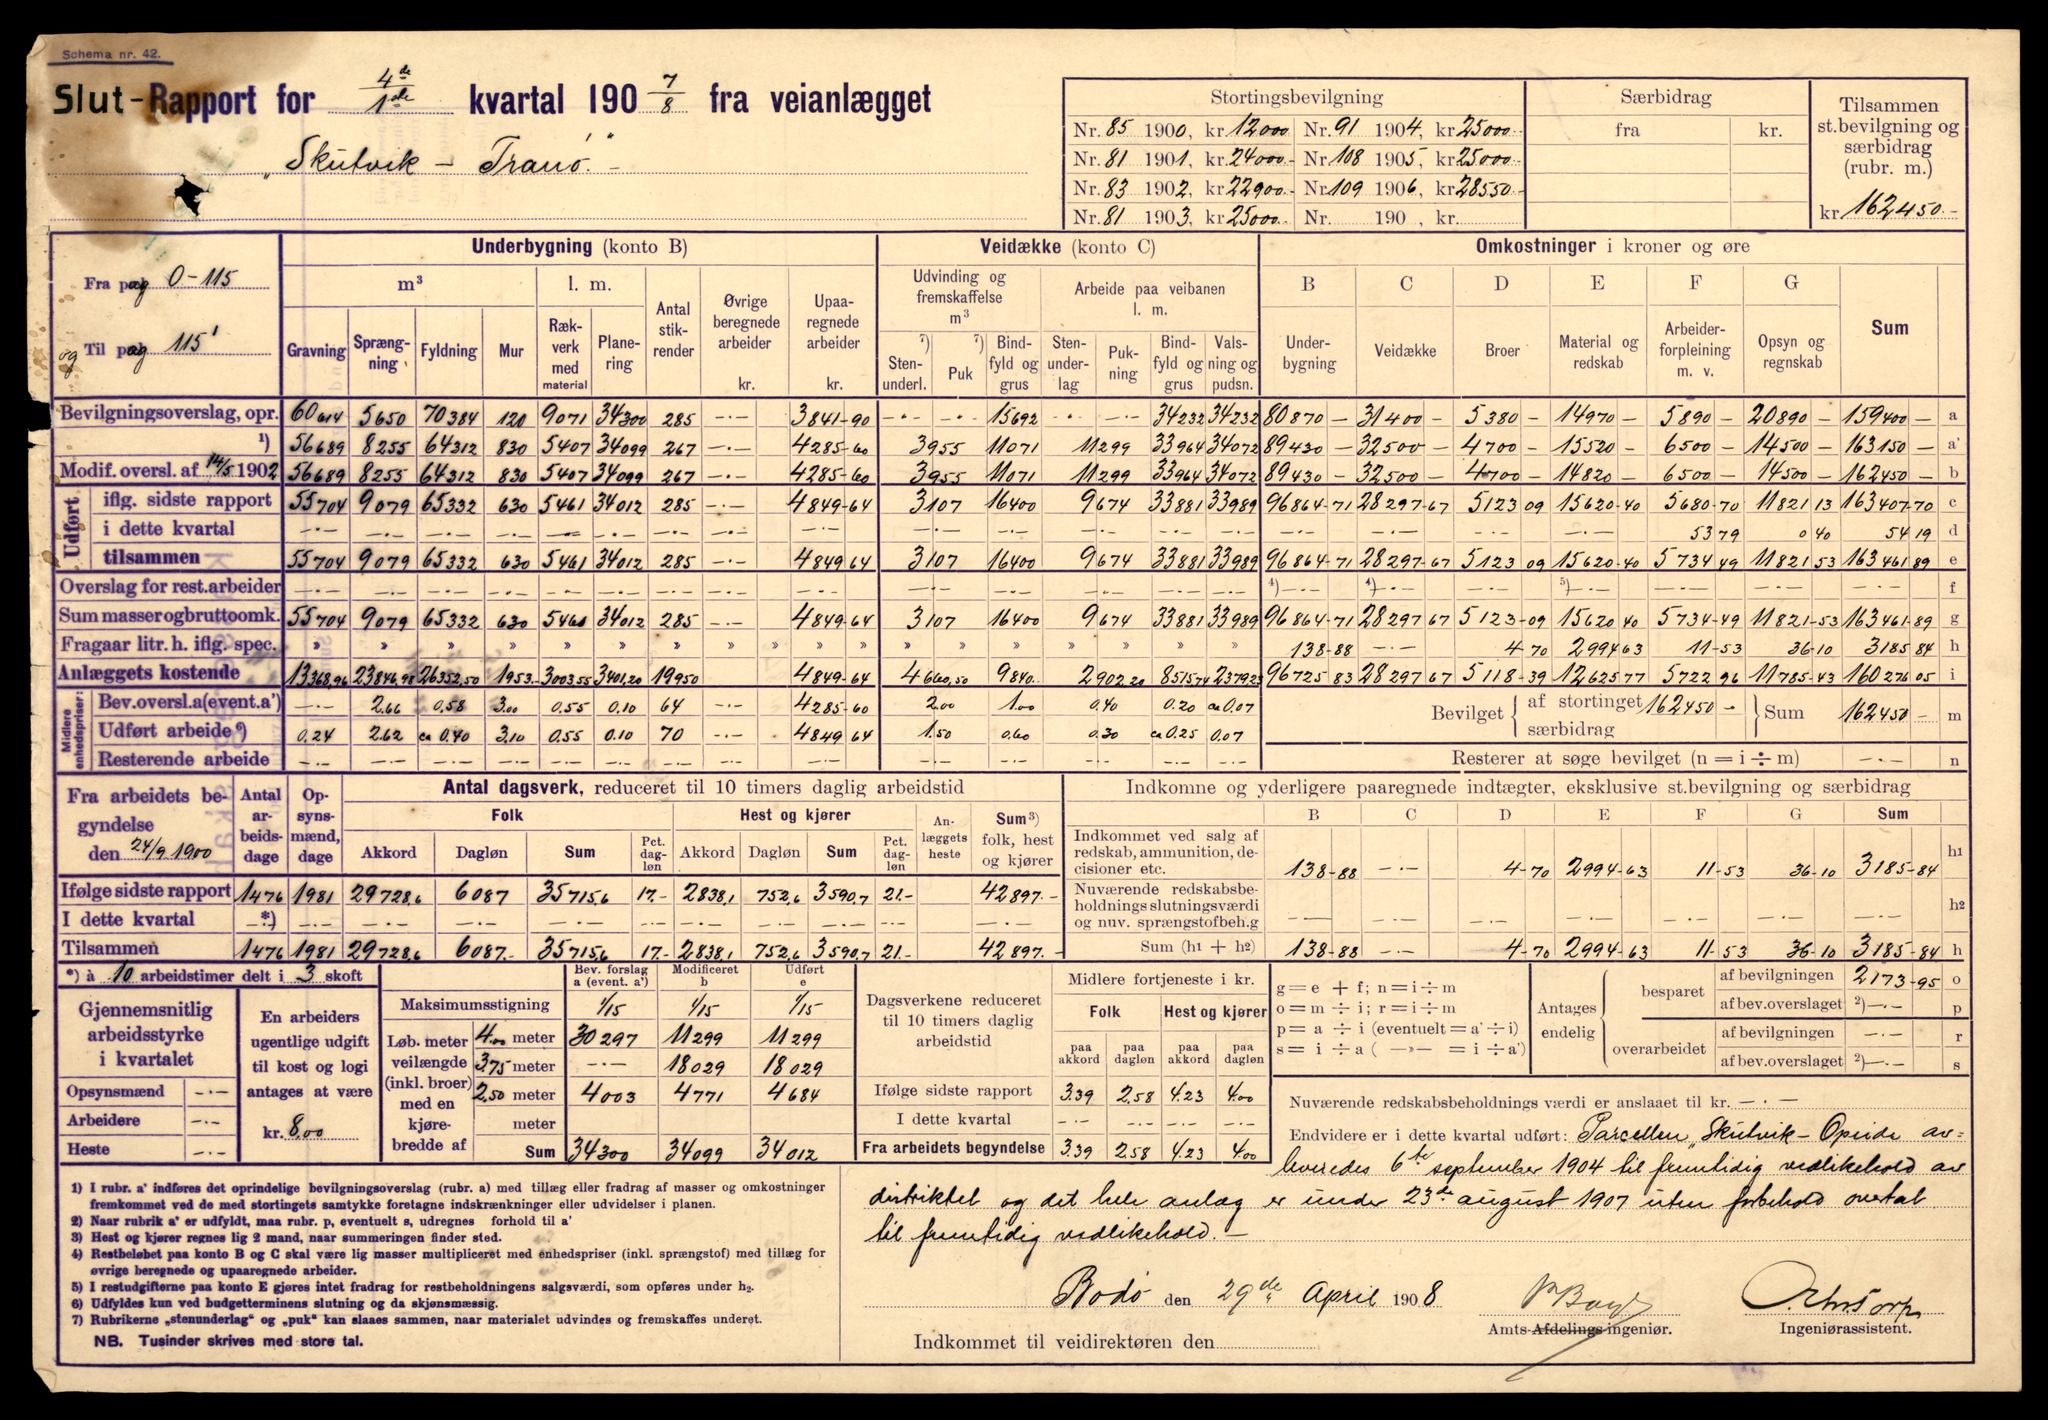 Schema nr. 42.
Slut-Rapport for 4de/1ste kvartal 190 7/8 fra veianlægget
„Skutvik – Tranö."
Stortingsbevilgning Særbidrag Tilsammen st.bevilgning og særbidrag (rubr. m.)
fra kr.
Nr. 85 1900, kr. 12000 Nr. 91 1904, kr. 25000
Nr. 81 1901, kr. 24000 Nr. 108 1905, kr. 25000
Nr. 83 1902, kr. 22900 Nr. 109 1906, kr. 28550
Nr. 81 1903, kr. 25000 Nr. 190 , kr.
kr. 162450.-
Fra pag 0-115
og Til pag 115'
Underbygning (konto B) Veidække (konto C) Omkostninger i kroner og øre
m³ l. m. Antal stikrender Øvrige beregnede arbeider kr. Upaaregnede arbeider kr.
Gravning Sprængning Fyldning Mur Rækverk med material Planering
Udvinding og fremskaffelse m³ Arbeide paa veibanen l. m.
7) Stenunderl. 7) Puk Bindfyld og grus Stenunderlag Pukning Bindfyld og grus Valsning og pudsn.
B C D E F G Sum
Underbygning Veidække Broer Material og redskab Arbeiderforpleining m. v. Opsyn og regnskab
Bevilgningsoverslag, opr. 60614 5650 70384 120 9071 34300 285 -·- 3841-90 -·- -·- 15692 -·- -·- 34232 34232 80870 - 31400 - 5380 - 14970 - 5890 - 20890 - 159400 - a
1) 56689 8255 64312 830 5407 34099 267 -·- 4285-60 3955 11071 11299 33964 34072 89430 - 32500 - 4700 - 15520 - 6500 - 14500 - 163150 - a'
Modif. oversl. af 14/5 1902 56689 8255 64312 830 5407 34099 267 -·- 4285-60 3955 11071 11299 33964 34072 89430 - 32500 - 4700 - 14820 - 6500 - 14500 - 162450 - b
Udført
iflg. sidste rapport 55704 9079 65332 630 5461 34012 285 -·- 4849-64 3107 16400 9674 33881 33989 96864-71 28297-67 5123 09 15620-40 5680-70 11821 13 163407-70 c
i dette kvartal -·- -·- -·- -·- -·- -·- -·- -·- -·- -·- -·- -·- -·- -·- -·- -·- -·- -·- 53 79 0 40 54 19 d
tilsammen 55704 9079 65332 630 5461 34012 285 -·- 4849 64 3107 16400 9674 33881 33989 96864-71 28297-67 5123 09 15620-40 5734 49 11821 53 163461 89 e
Overslag for rest. arbeider -·- -·- -·- -·- -·- -·- -·- -·- -·- -·- -·- -·- -·- -·- 4) -·- 4) -·- -·- 5) -·- -·- -·- -·- f
Sum masser og bruttoomk. 55704 9079 65332 630 5461 34012 285 -·- 4849-64 3107 16400 9674 33881 33989 96864-71 28297 67 5123-09 15620 40 5734-49 11821-53 163461-89 g
Fragaar litr. h. iflg. spec. » » » » » » » » » » » » » » » » 138-88 -·- 4-70 2994 63 11-53 36-10 3185 84 h
Anlæggets kostende 13368,96 23846,98 26352,50 1953.- 3003,55 3401,20 19950 4849-64 4660,50 9840.- 2902,20 8515,74 2379,23 96725 83 28297 67 5118-39 12625 77 5722 96 11785-43 160276 05 i
Midlere enhedspriser:
Bev. oversl. a (event. a') -·- 2.66 0.58 3.00 0.55 0.10 64 -·- 4285-60 2.00 1.00 0.40 0.20 ca 0.07
Udført arbeide 6) 0.24 2.62 ca 0.40 3.10 0.55 0.10 70 -·- 4849 64 1.50 0.60 0.30 ca 0.25 0.07
Resterende arbeide -·- -·- -·- -·- -·- -·- -·- -·- -·- -·- -·- -·- -·- -·-
Bevilget af stortinget 162450 - særbidrag Sum 162450 - m
Resterer at søge bevilget (n = i ÷ m) -·- n
Fra arbeidets begyndelse den 24/9 1900
Antal arbeidsdage Opsynsmænd, dage
Antal dagsverk, reduceret til 10 timers daglig arbeidstid
Folk Hest og kjører Anlæggets heste Sum 3) folk, hest og kjører
Akkord Dagløn Sum Pct. dagløn Akkord Dagløn Sum Pct. dagløn
Ifølge sidste rapport 1476 1981 29728,6 6087 35715,6 17.- 2838,1 752,6 3590,7 21.- 42897.-
I dette kvartal -*) -·- -·- -·- -·- -·- -·- -·- -·- -·- -·-
Tilsammen 1476 1981 29728,6 6087.- 35715,6 17.- 2838,1 752,6 3590,7 21.- 42897.-
Indkomne og yderligere paaregnede indtægter, eksklusive st.bevilgning og særbidrag
B C D E F G Sum
Indkommet ved salg af redskab, ammunition, decisioner etc. 138-88 -·- 4-70 2994-63 11-53 36-10 3185-84 h1
Nuværende redskabsbeholdnings slutningsværdi og nuv. sprængstofbeh.g -·- -·- -·- -·- -·- -·- -·- h2
Sum (h1 + h2) 138-88 -·- 4-70 2994-63 11-53 36-10 3185-84 h
*) à 10 arbeidstimer delt i 3 skoft
Gjennemsnitlig arbeidsstyrke i kvartalet
Opsynsmænd -·-
Arbeidere -·-
Heste -·-
En arbeiders ugentlige udgift til kost og logi antages at være
kr. 8,00
Bev. forslag a (event. a') Modificeret b Udført e
Maksimumsstigning 1/15 1/15 1/15
Løb. meter veilængde (inkl. broer) med en kjørebredde af
4.00 meter 30297 11299 11299
3,75 meter -·- 18029 18029
2,50 meter 4003 4771 4684
meter
Sum 34300 34099 34012
Dagsverkene reduceret til 10 timers daglig arbeidstid
Midlere fortjeneste i kr.
Folk Hest og kjører
paa akkord paa dagløn paa akkord paa dagløn
Ifølge sidste rapport 3.39 2.58 4.23 4.00
I dette kvartal -·- -·- -·- -·-
Fra arbeidets begyndelse 3.39 2.58 4.23 4.00
g = e + f; n = i ÷ m
o = m ÷ i; r = i ÷ m
p = a ÷ i (eventuelt = a' ÷ i)
s = i ÷ a ( —»— = i ÷ a')
Antages endelig
besparet af bevilgningen 2173-95 o
af bev.overslaget 2) -·- p
overarbeidet af bevilgningen -·- r
af bev.overslaget 2) -·- s
Nuværende redskabsbeholdnings værdi er anslaaet til kr. -·-
Endvidere er i dette kvartal udført: Parcellen „Skutvik-Opeide av=
leveredes 6te september 1904 til fremtidig vedlikehold av
distriktet og det hele anlæg er under 23de august 1907 uten forbehold overtat
til fremtidig vedlikehold. -
1) I rubr. a' indføres det oprindelige bevilgningsoverslag (rubr. a) med tillæg eller fradrag af masser og omkostninger
fremkommet ved de med stortingets samtykke foretagne indskrænkninger eller udvidelser i planen.
2) Naar rubrik a' er udfyldt, maa rubr. p, eventuelt s, udregnes forhold til a'
3) Hest og kjører regnes lig 2 mand, naar summeringen finder sted.
4) Restbeløbet paa konto B og C skal være lig masser multipliceret med enhedspriser (inkl. sprængstof) med tillæg for
øvrige beregnede og upaaregnede arbeider.
5) I restudgifterne paa konto E gjøres intet fradrag for restbeholdningens salgsværdi, som opføres under h2.
6) Udfyldes kun ved budgetterminens slutning og da skjønsmæssig.
7) Rubrikerne „stenunderlag" og „puk" kan slaaes sammen, naar materialet udvindes og fremskaffes underet.
NB. Tusinder skrives med store tal.
Bodö den 29de April 1908
Amts-Afdelings ingeniør.
Ingeniørassistent.
Indkommet til veidirektøren den